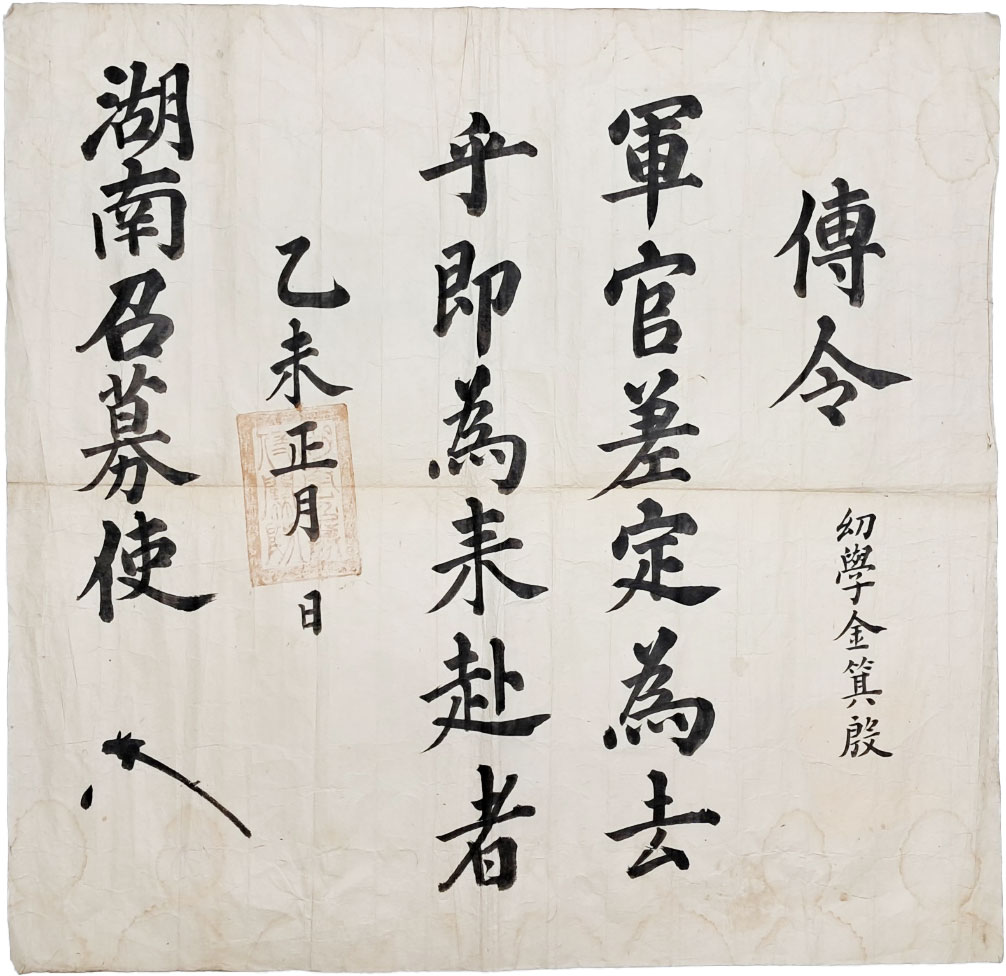 傳令
幼學金箕殷
軍官差定為去
乎即為来赴者
乙未正月 日
湖南召募使